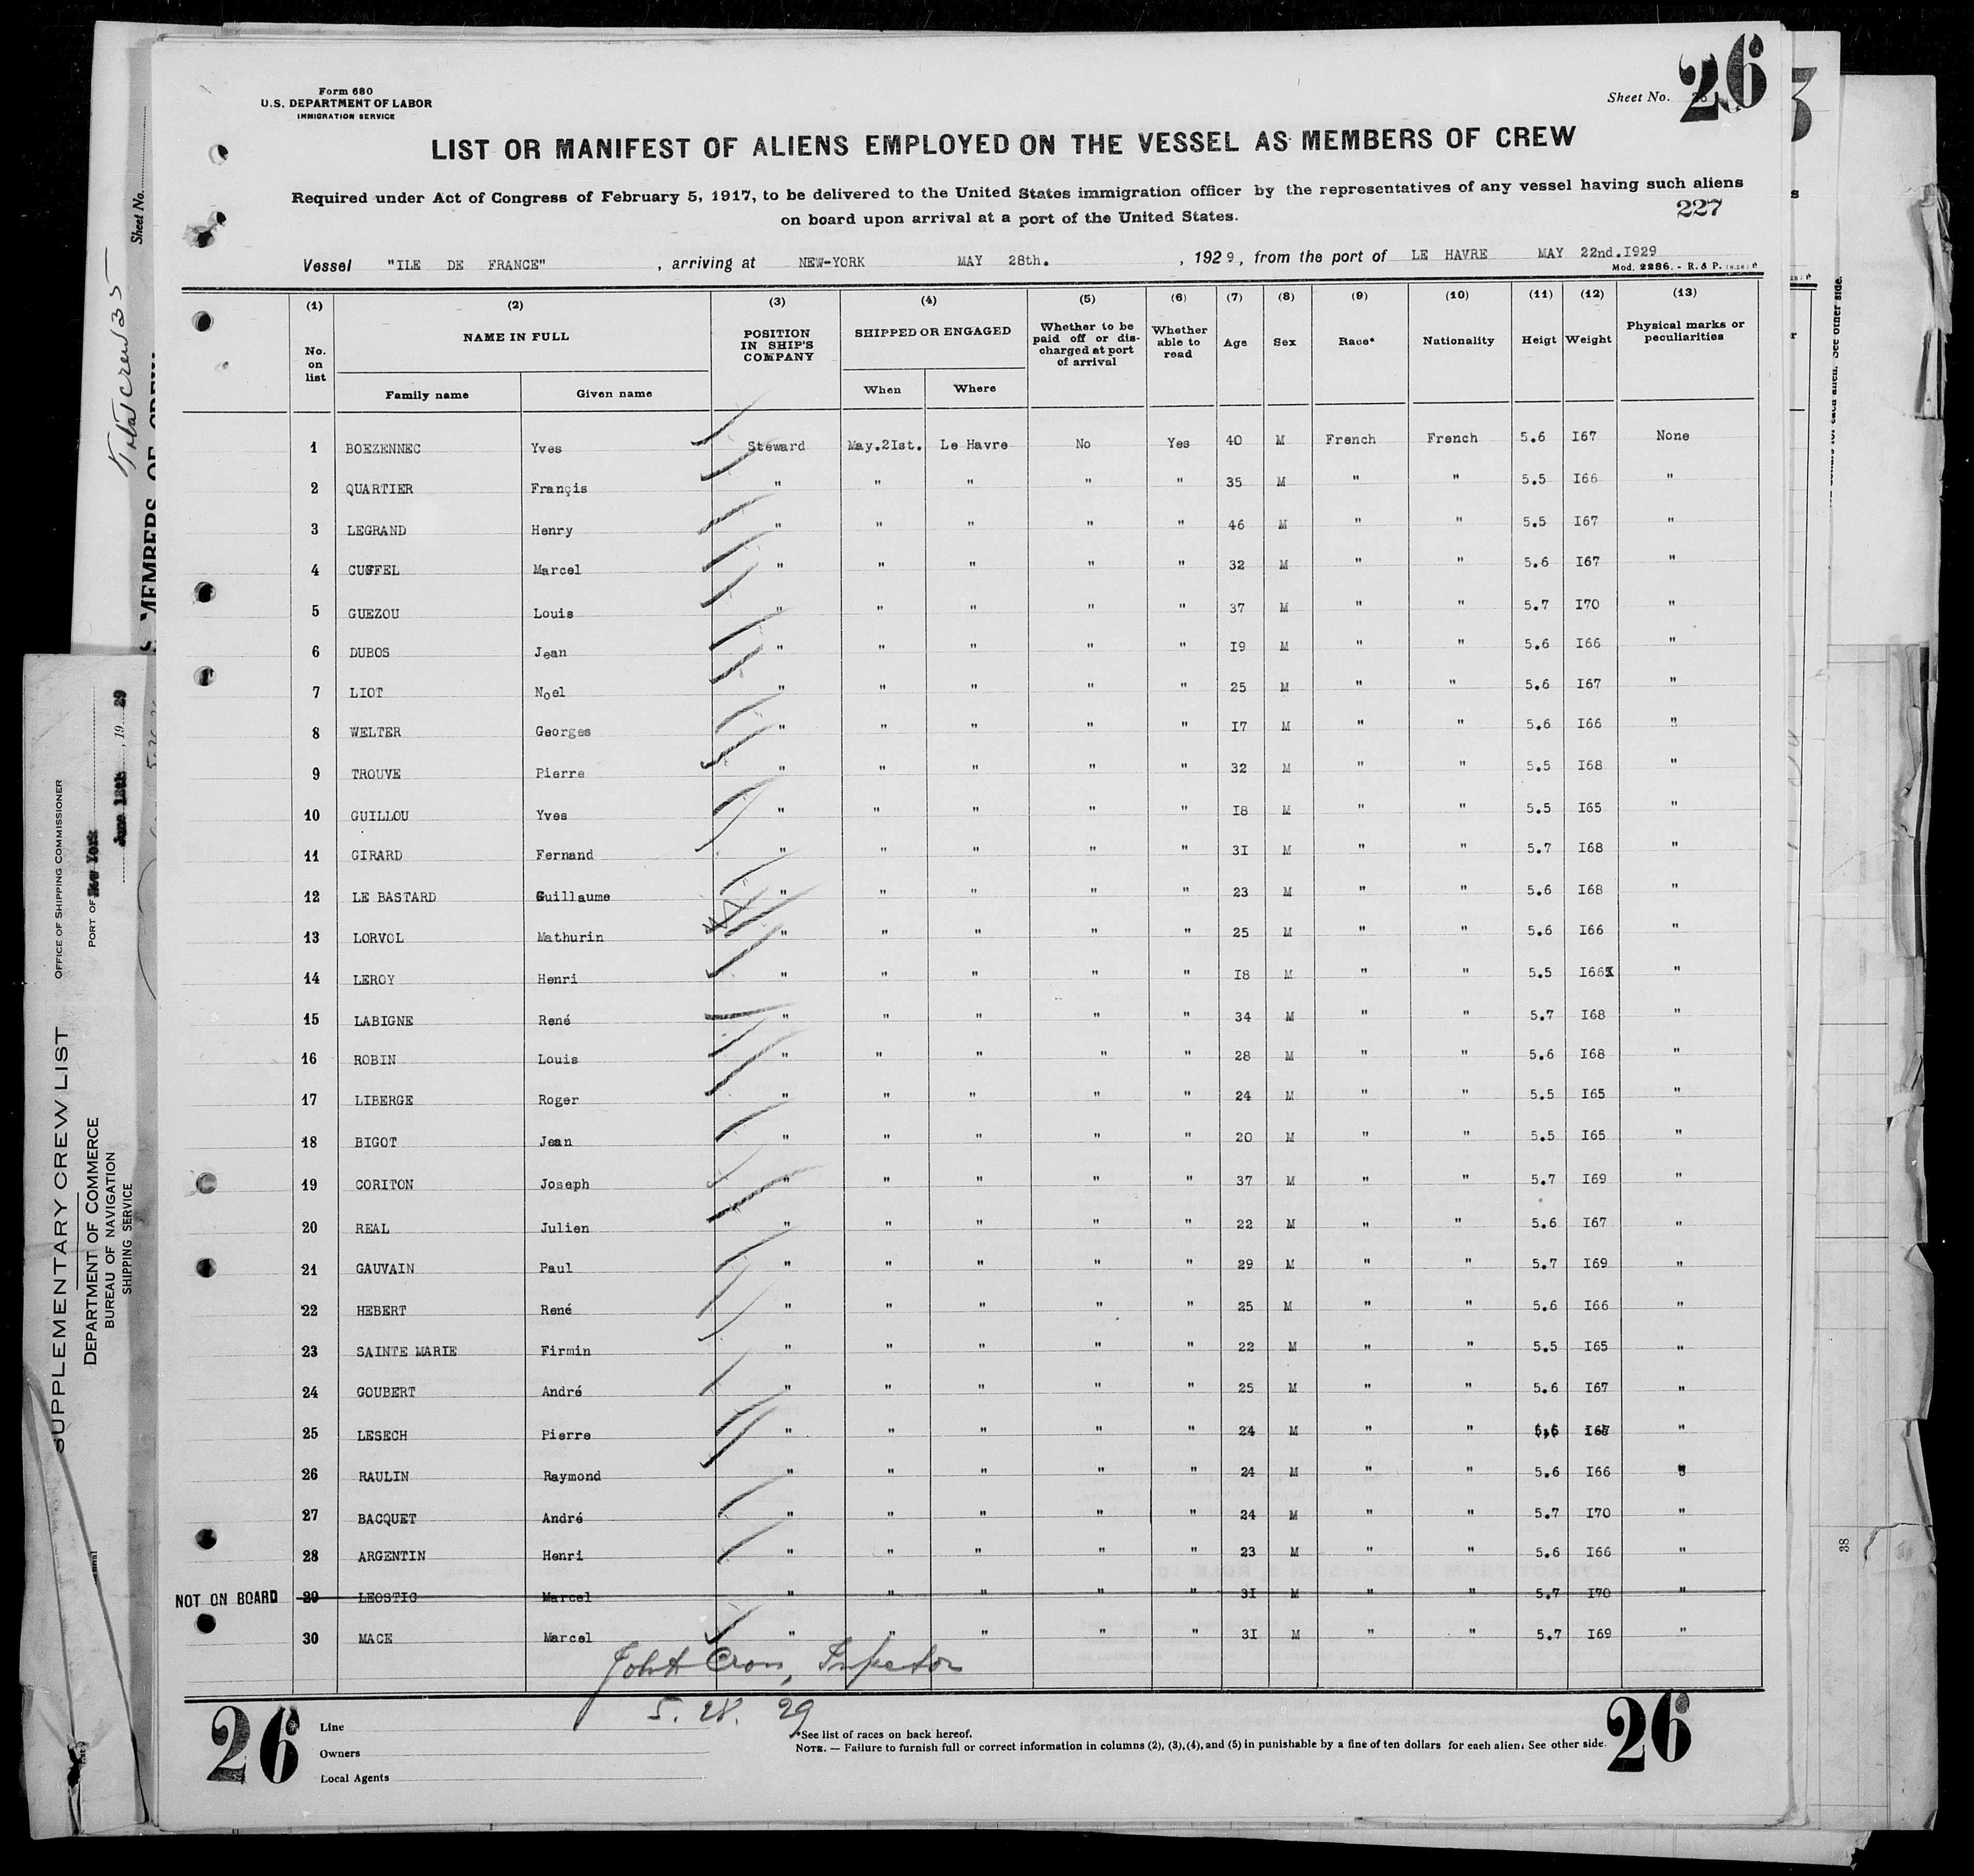 Form 680
U.S. DEPARTMENT OF LABOR
IMMIGRATION SERVICE
Sheet No. 26
LIST OR MANIFEST OF ALIENS EMPLOYED ON THE VESSEL AS MEMBERS OF CREW
Required under Act of Congress of February 5, 1917, to be delivered to the United States immigration officer by the representatives of any vessel having such aliens
on board upon arrival at a port of the United States.
227
Vessel "ILE DE FRANCE" , arriving at NEW-YORK MAY 28th. , 1929, from the port of LE HAVRE MAY 22nd.I929
Mod. 2286. - R. & P.
(1) (2) (3) (4) (5) (6) (7) (8) (9) (10) (11) (12) (13)
No. on list NAME IN FULL POSITION IN SHIP'S COMPANY SHIPPED OR ENGAGED Whether to be paid off or discharged at port of arrival Whether able to read Age Sex Race* Nationality Heigt Weight Physical marks or peculiarities
Family name Given name When Where
1 BOEZENNEC Yves Steward May.2Ist. Le Havre No Yes 40 M French French 5.6 I67 None
2 QUARTIER Françis " " " " " 35 M " " 5.5 I66 "
3 LEGRAND Henry " " " " " 46 M " " 5.5 I67 "
4 CUFFEL Marcel " " " " " 32 M " " 5.6 I67 "
5 GUEZOU Louis " " " " " 37 M " " 5.7 I70 "
6 DUBOS Jean " " " " " I9 M " " 5.6 I66 "
7 LIOT Noel " " " " " 25 M " " 5.6 I67 "
8 WELTER Georges " " " " " I7 M " " 5.6 I66 "
9 TROUVE Pierre " " " " " 32 M " " 5.5 I68 "
10 GUILLOU Yves " " " " " I8 M " " 5.5 I65 "
11 GIRARD Fernand " " " " " 3I M " " 5.7 I68 "
12 LE BASTARD Guillaume " " " " " 23 M " " 5.6 I68 "
13 LORVOL Mathurin " " " " " 25 M " " 5.6 I66 "
14 LEROY Henri " " " " " I8 M " " 5.5 I66 "
15 LABIGNE René " " " " " 34 M " " 5.7 I68 "
16 ROBIN Louis " " " " " 28 M " " 5.6 I68 "
17 LIBERGE Roger " " " " " 24 M " " 5.5 I65 "
18 BIGOT Jean " " " " " 20 M " " 5.5 I65 "
19 CORITON Joseph " " " " " 37 M " " 5.7 I69 "
20 REAL Julien " " " " " 22 M " " 5.6 I67 "
21 GAUVAIN Paul " " " " " 29 M " " 5.7 I69 "
22 HEBERT René " " " " " 25 M " " 5.6 I66 "
23 SAINTE MARIE Firmin " " " " " 22 M " " 5.5 I65 "
24 GOUBERT André " " " " " 25 M " " 5.6 I67 "
25 LESECH Pierre " " " " " 24 M " " 5.6 "
26 RAULIN Raymond " " " " " 24 M " " 5.6 I66 "
27 BACQUET André " " " " " 24 M " " 5.7 I70 "
28 ARGENTIN Henri " " " " " 23 M " " 5.6 I66 "
NOT ON BOARD 29 LEOSTIC Marcel " " " " " 3I M " " 5.7 I70 "
30 MACE Marcel " " " " " 3I M " " 5.7 I69 "
Inspector
5. 28. 29
26
Line
Owners
Local Agents
*See list of races on back hereof.
NOTE. — Failure to furnish full or correct information in columns (2), (3), (4), and (5) in punishable by a fine of ten dollars for each alien. See other side.
26
Total crew 35
Sheet No.
MEMBERS OF CREW
SUPPLEMENTARY CREW LIST
DEPARTMENT OF COMMERCE
BUREAU OF NAVIGATION
SHIPPING SERVICE
OFFICE OF SHIPPING COMMISSIONER
PORT OF New York
June 18th , 19 29
for each alien. See other side.
38